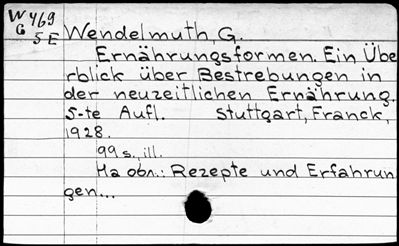 W 469
G
5E
Wendelmuth, G.
Ernährungsformen. Ein Übe
rblick über Bestrebungen in
der neuzeitlichen Ernährung.
5-te Aufl. Stuttgart, Franck,
1928.
99 s., ill.
На обл.: Rezepte und Erfahrun
gen...